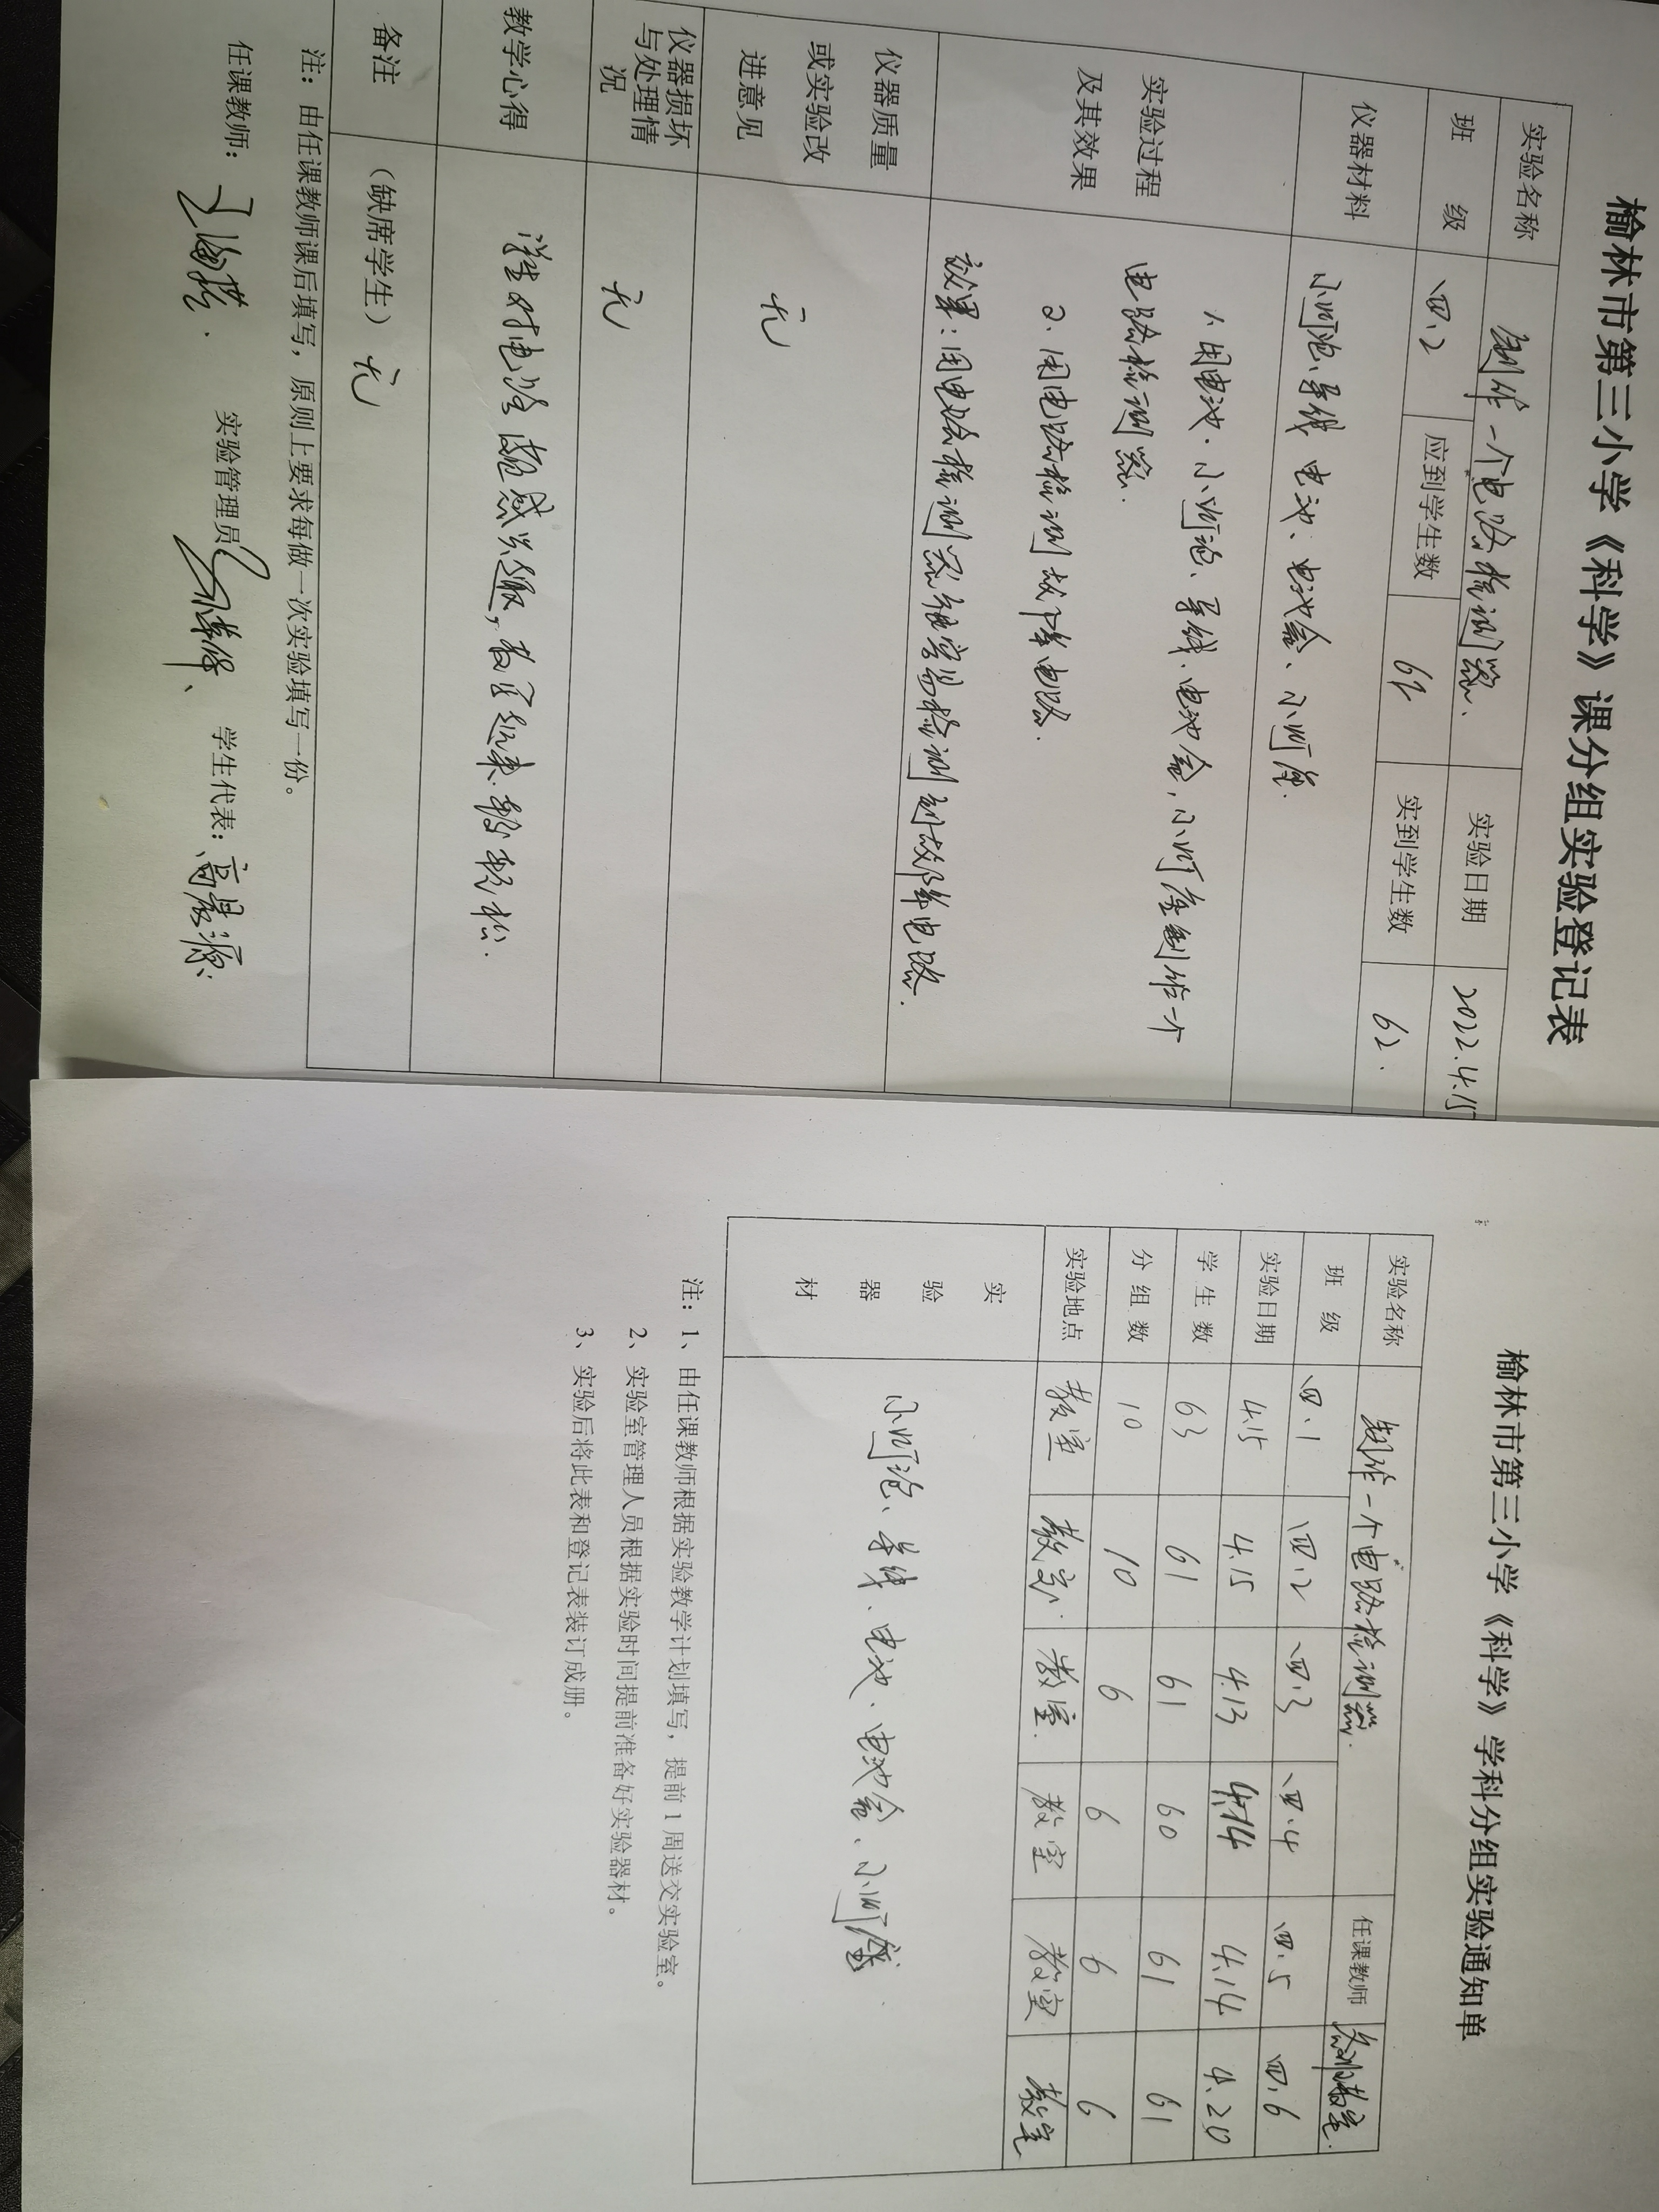 榆林市第三小学《科学》课分组实验登记表
实验名称 制作一个电路检测器、 实验日期 2022.4.15
班 级 四.2 应到学生数 62 实到学生数 62.
仪器材料 小灯泡、导线 电池、电池盒、小灯座.
实验过程及其效果
1.用电池、小灯泡、导线、电池盒,小灯座制作一个
电路检测器.
2.用电路检测器检测故障电路.
效果:用电路检测器很容易检测到故障电路.
仪器质量或实验改进意见 无
仪器损坏与处理情况 无
教学心得 学生对电路 感兴趣,教学起来 较轻松.
备注 (缺席学生) 无
注:由任课教师课后填写,原则上要求每做一次实验填写一份。
任课教师: 实验管理员 学生代表:高晨源.
榆林市第三小学《科学》学科分组实验通知单
实验名称 制作一个电路检测器. 任课教师
班 级 四.1 四.2 四.3 四.4 四.5 四.6
实验日期 4.15 4.15 4.13 4.14 4.14 4.20
学 生 数 63 61 61 60 61 61
分 组 数 10 10 6 6 6 6
实验地点 教室 教室. 教室. 教室 教室 教室
实验器材 小灯泡、导线、电池、电池盒、小灯座
注:1、由任课教师根据实验教学计划填写,提前1周送交实验室。
2、实验室管理人员根据实验时间提前准备好实验器材。
3、实验后将此表和登记表装订成册。